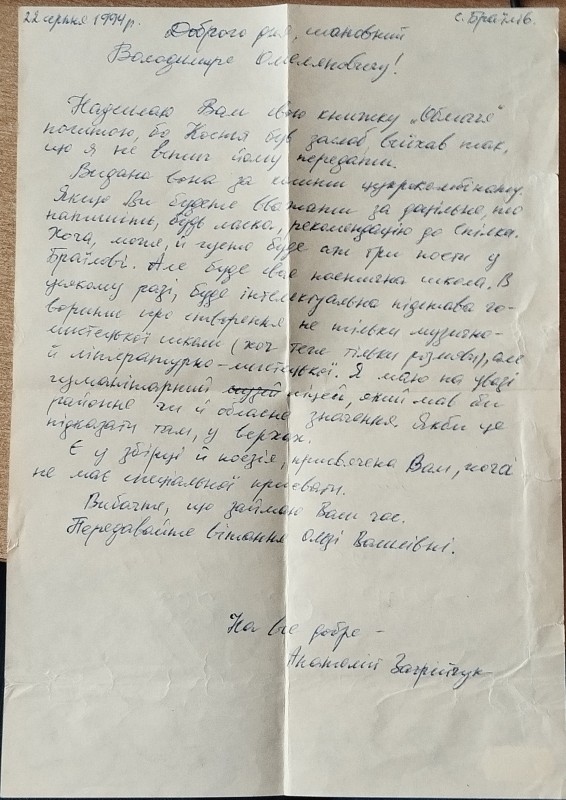 22 серпня 1994 р. с. Браїлів.
Доброго дня, шановний
Володимире Омеляновичу!
Надсилаю Вам свою книжку „Обличчя"
поштою, бо Костя був заслаб, виїхав так,
що я не встиг йому передати.
Видано вона за кошти цукрокомбінату.
Якщо Ви будете вважати за доцільне, то
напишіть, будь ласка, рекомендацію до Спілки.
Хоча, може, й густо буде аж три поети у
Браїлові. Але буде своя поетична школа. В
усякому разі, буде інтелектуальна підстава го-
ворити про створення не тільки музично-
мистецької школи (хоч теж тільки розмови), але
й літературно-мистецької. Я маю на увазі
гуманітарний ліцей, який мав би
районне чи й обласне значення. Якби це
підказати там, у верхах.
Є у збірці й поезія, присвячена Вам, хоча
не має спеціальної присвяти.
Вибачте, що займаю Ваш час.
Передавайте вітання Ользі Василівні.
На все добре –
Анатолій